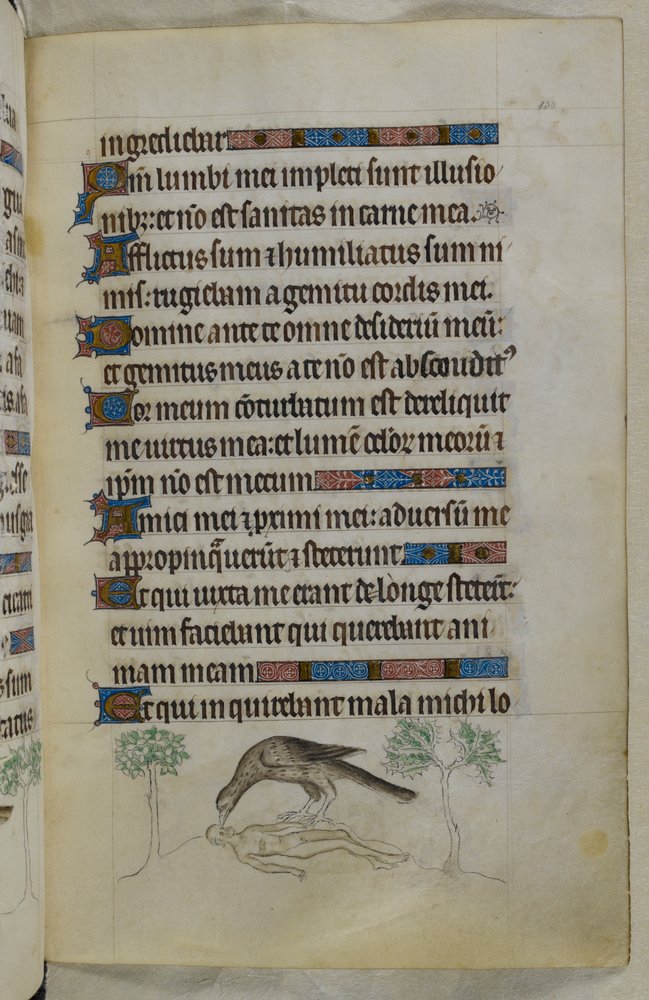 130
ingrediebar
Qm̄ lumbi mei impleti sunt illusio
nibꝫ: et nō est sanitas in carne mea.
Afflictus sum ⁊ humiliatus sum ni
mis: rugiebam a gemitu cordis mei.
Domine ante te omne desideriū meū:
et gemitus meus a te nō est absconditꝰ
Cor meum cōturbatum est dereliquit
me uirtus mea: et lumē oc̄loꝝ meorū ⁊
ip̄m nō est mecum
Amici mei ⁊ ꝓximi mei: aduersū me
appropinqͣuerūt ⁊ steterunt.
Et qui iuxta me erant de longe steter̄t:
et uim faciebant qui querebant ani
mam meam
Et qui inquirebant mala michi lo